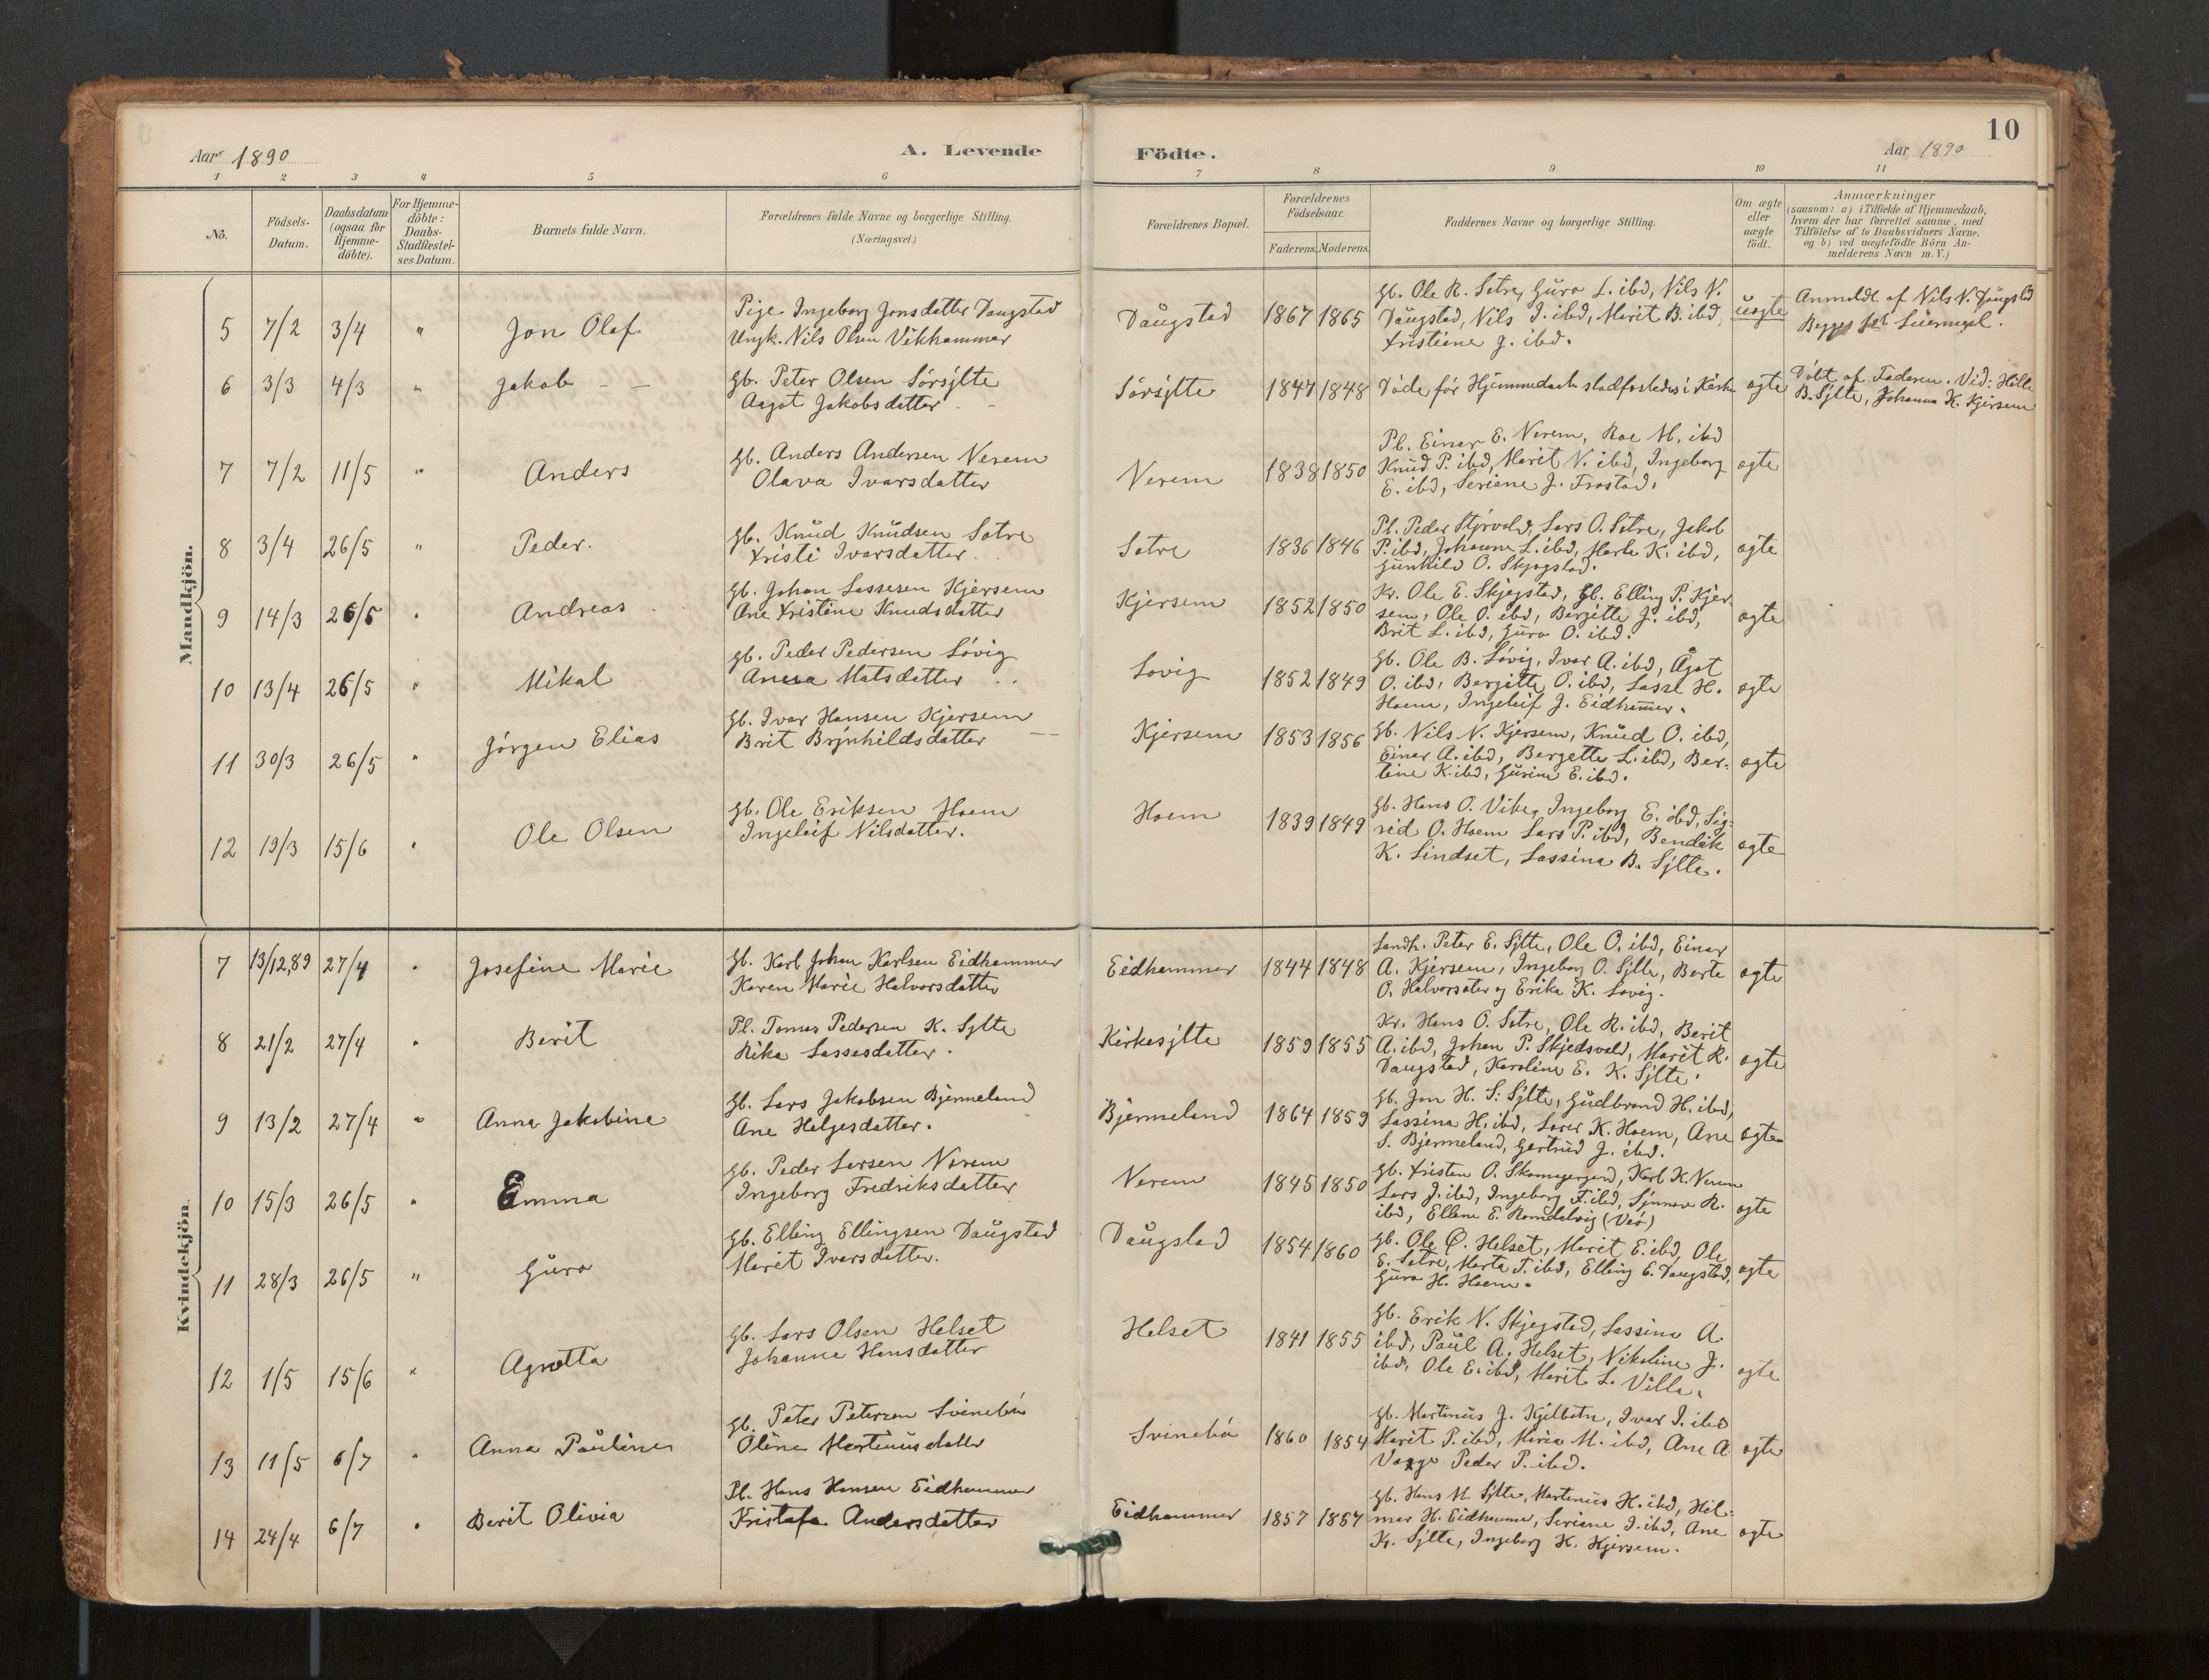 10
Aar 1890
A. Levende
Födte.
Aar 1890
1 2 3 4 5 6 7 8 9 10 11
No.
Födsels-
Datum.
Daabsdatum
(ogsaa for
Hjemme-
döbte).
For Hjemme-
döbte:
Daabs-
Stadfæstel-
ses Datum.
Barnets fulde Navn.
Forældrenes fulde Navne og borgerlige Stilling.
(Næringsvei.)
Forældrenes Bopæl.
Forældrenes
Födselsaar.
Faderens. Moderens.
Faddernes Navne og borgerlige Stilling.
Om ægte
eller
uægte
födt.
Anmærkninger
(saasom: a) i Tilfælde af Hjemmedaab,
hvem der har forrettet samme, med
Tilföielse af to Daabsvidners Navne,
og b) ved uægtefödte Börn An-
melderens Navn m. V.)
Mandkjön.
5 7/2 3/4 " Jon Olaf
Pige Ingeborg Jonsdatter Daugstad
Ungk. Nils Olsen Vikhammer
Daugstad 1867 1865
Gb. Ole R. Sotre, Guro L. ibd, Nils N.
Daugstad, Nils J. ibd, Marit B. ibd
Kristiane J. ibd.
uægte
Anmeldt af Nils N. Daugstad
Begges 1ste Leiermaal.
6 3/3 4/3 " Jakob
Gb. Peter Olsen Sörsylte
Aagot Jakobsdatter
Sörsylte 1847 1848
Döde för Hjemmedaab stadfæstedes i Kirke
ægte
Döbt af Faderen. Vid: Hille
B. Sylte, Johanna K. Kjersem
7 7/2 11/5 " Anders
Gb. Anders Andersen Nerem
Olava Ivarsdatter
Nerem 1838 1850
Pl. Einar E. Nerem, Roe M. ibd
Knud P. ibd, Marit N. ibd, Ingeborg
E. ibd, Seriane J. Frostad.
ægte
8 3/4 26/5 " Peder.
Gb. Knud Knudsen Sotre
Kristi Ivarsdatter
Sotre 1836 1846
Pl. Peder Styrvold, Lars O. Sotre, Jakob
P. ibd, Johanne L. ibd, Marta K. ibd,
Gunhild O. Skjegstad.
ægte
9 14/3 26/5 " Andreas
Gb. Johan Lassesen Kjersem
Ane Kristine Knudsdatter
Kjersem 1852 1850
Kr. Ole E. Skjegstad, Gb. Elling P. Kjer-
sem, Ole O. ibd, Bergitte J. ibd,
Brit L. ibd, Guro O. ibd.
ægte
10 13/4 26/5 " Mikal
Gb. Peder Pedersen Lövig
Anna Matsdatter
Lovig 1852 1849
Gb. Ole B. Lövig, Ivar A. ibd, Ågot
O. ibd, Bergitte O. ibd, Lasse H.
Hoem, Ingeleif J. Eidhammer.
ægte
11 30/3 26/5 " Jörgen Elias
Gb. Ivar Hansen Kjersem
Brit Brynhildsdatter
Kjersem 1853 1856
Gb. Nils N. Kjersem, Knud O. ibd,
Einar A. ibd, Bergette L. ibd, Ber-
tine K. ibd, Gurine E. ibd.
ægte
12 19/3 15/6 " Ole Olsen
Gb. Ole Eriksen Hoem
Ingeleif Nilsdatter.
Hoem 1839 1849
Gb. Hans O. Vike, Ingeborg E. ibd, Sig-
rid O. Hoem Lars P. ibd, Bendik
K. Lindset, Lassina B. Sylte.
ægte
Kvindekjön.
7 13/12,89 27/4 " Josefine Marie
Gb. Karl Johan Karlsen Eidhammer
Karen Marie Halvorsdatter
Eidhammer 1844 1848
Landh. Peter E. Sylte, Ole O. ibd, Einar
A. Kjersem, Ingeborg O. Sylte, Berte
O. Halvorsater og Erika K. Lovig.
ægte
8 21/2 27/4 " Berit
Pl. Tomas Pedersen K. Sylte
Rika Lassesdatter.
Kirkesylte 1859 1855
Kr. Hans O. Sotre, Ole R. ibd, Berit
A. ibd, Johan P. Skjedsvold, Marit R.
Daugstad, Karoline E. K. Sylte.
ægte
9 13/2 27/4 " Anna Jakobine
Gb. Lars Jakobsen Bjermeland
Ane Helgesdatter.
Bjermeland 1864 1859
Gb. Jon H. S. Sylte, Gudbrand H. ibd,
Lassina H. ibd, Lars K. Hoem, Ane
S. Bjermeland, Gertrud J. ibd.
ægte
10 15/3 26/5 " Emma
Gb. Peder Larsen Nerem
Ingeborg Fredriksdatter
Nerem 1845 1850
Gb. Kristen O. Karl K. Nerem
Lars J. ibd, Ingeborg T. ibd, Synnove R.
ibd, Ellen E. Romdalvig (Veö)
ægte
11 28/3 26/5 " Guro
Gb. Elling Ellingsen Daugstad
Marit Ivarsdatter.
Daugstad 1854 1860
Gb. Ole O. Helset, Marit E. ibd, Ole
E. Sotre, Marta T. ibd, Elling E. Daugstad,
Guro H. Hoem.
ægte
12 1/5 15/6 " Agnetta
Gb. Lars Olsen Helset
Johanne Hansdatter
Helset 1841 1855
Gb. Erik N. Skjegstad, Lassina A.
ibd, Paul A. Helset, Nikoline J.
ibd, Ole E. ibd, Marit L. Villa.
ægte
13 11/5 6/7 " Anna Pauline
Gb. Peter Petersen Svinebö
Oline Martinusdatter
Svinebö 1860 1854
Gb. Martinus J. Kjelbotn, Ivar P. ibd
Marit P. ibd, Maria M. ibd, Ane A.
Peder P. ibd.
ægte
14 24/4 6/7 " Berit Olivia
Pl. Hans Hansen Eidhammer
Kristafa Andersdatter
Eidhammer 1857 1867
Gb. Hans M. Sylte, Martinus H. ibd, Hil-
mar H. Eidhammer, Seriane J. ibd, Ane
K. Sylte, Ingeborg K. Kjersem.
ægte